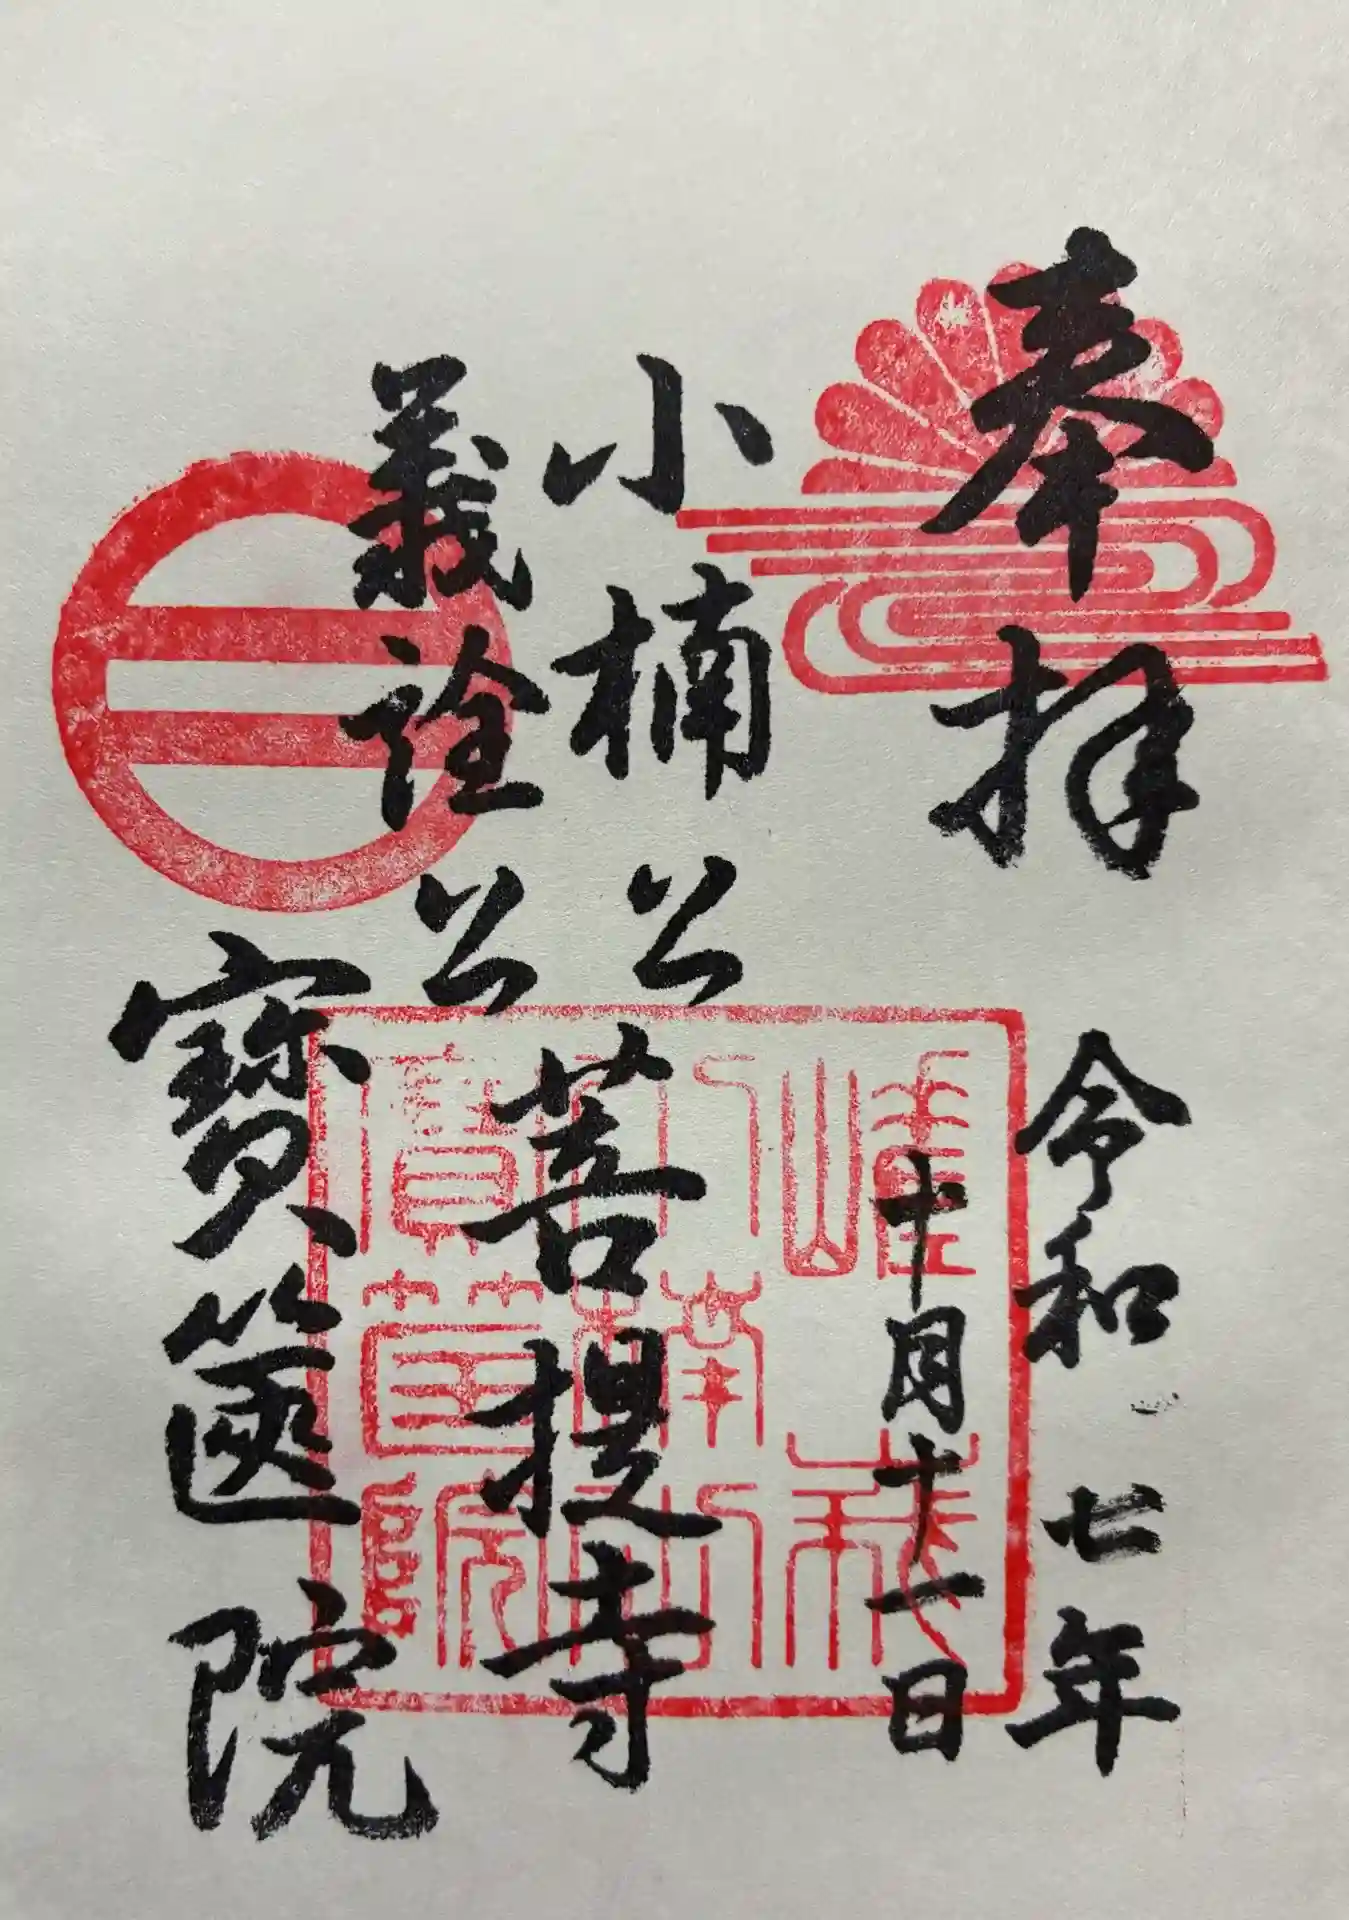 奉拝
令和七年
十月十一日
小楠公
義詮公
菩提寺
寳篋院